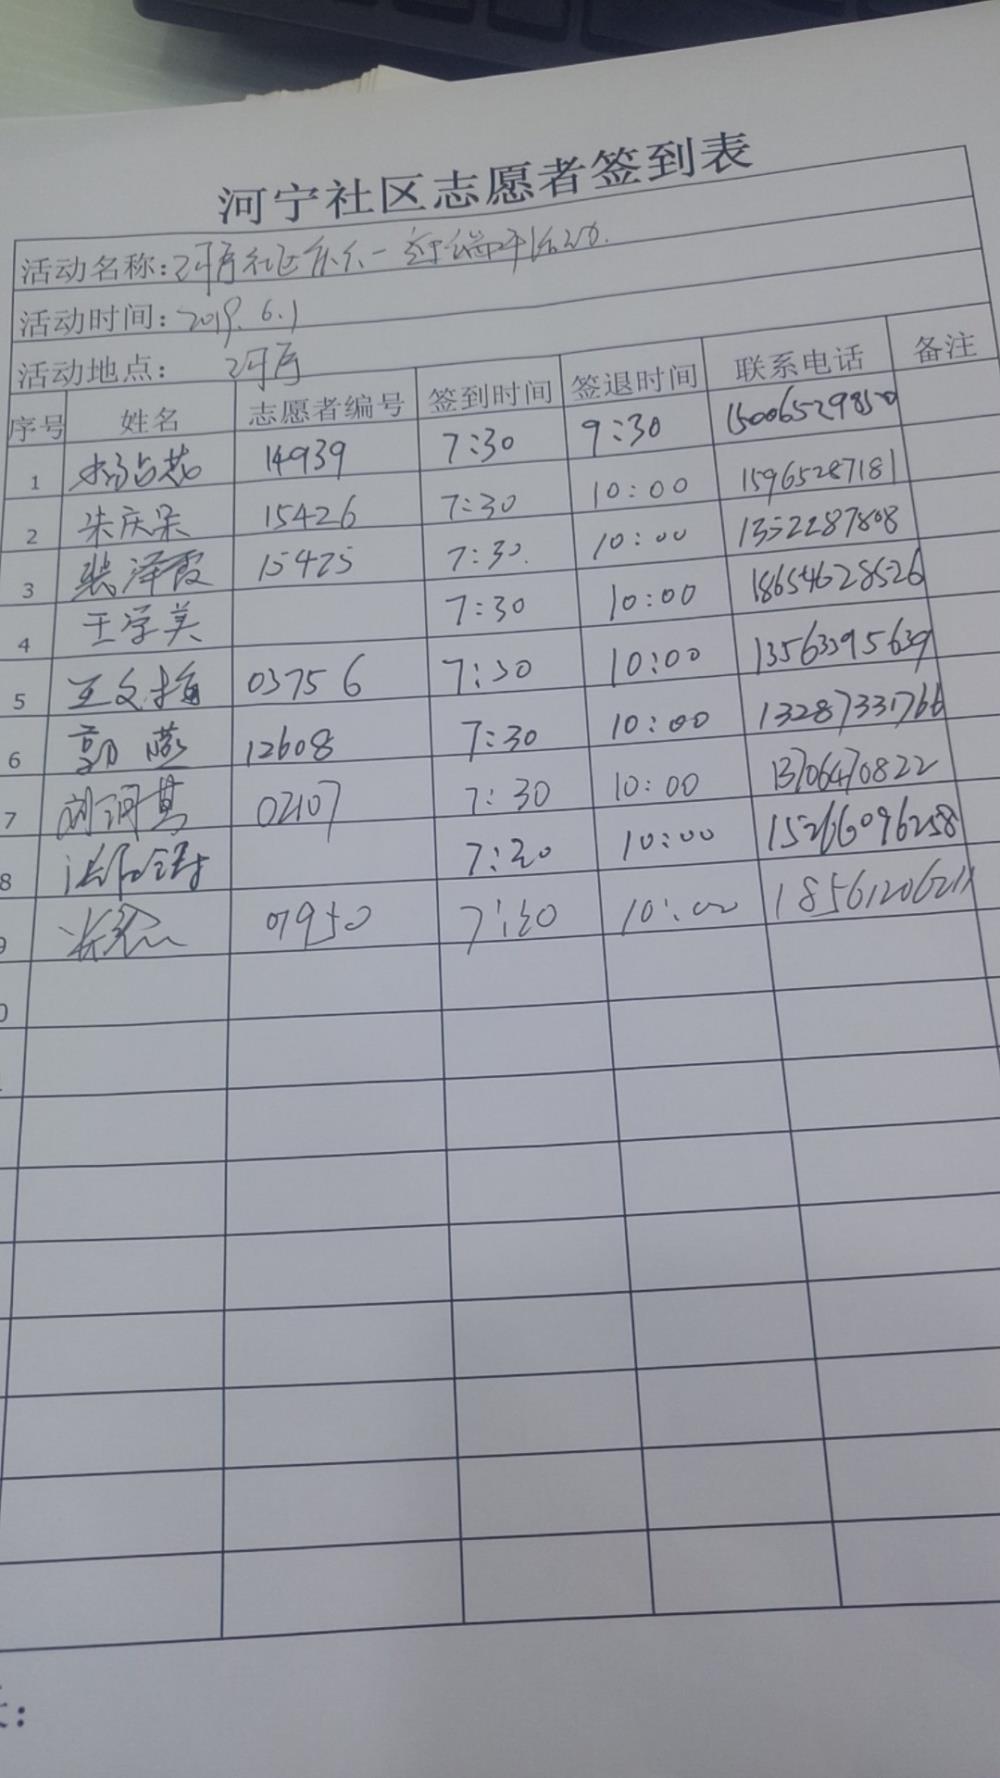 河宁社区志愿者签到表
活动名称:河宁社区 一 端午活动.
活动时间: 2019.6.1
活动地点: 河宁
序号 姓名 志愿者编号 签到时间 签退时间 联系电话 备注
1 杨占芬 14939 7:30 9:30 15006529850
2 朱庆荣 15426 7:30 10:00 15965287181
3 裴泽霞 15425 7:30. 10:00 1352287808
4 王学美 7:30 10:00 18654628526
5 王文梅 03756 7:30 10:00 13563395639
6 郭燕 12608 7:30 10:00 13287331766
7 刘河其 02107 7:30 10:00 13706470822
8 7:30 10:00 15266096258
9 07950 7:30 10:00